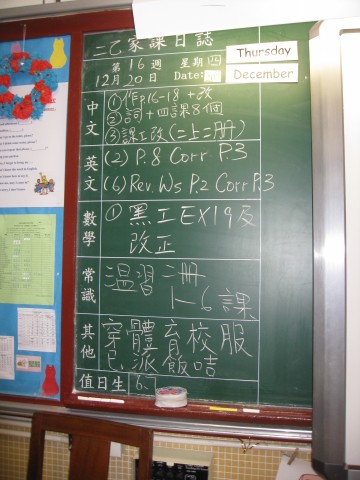 二乙家課日誌
第16週 星期四 Thursday
12月20日 Date: December
中文
①作p.16-18+改
②詞+四課8個
③課工改(二上二冊)
英文
(2) P.8 Corr. P.3
(6) Rev. Ws P.2 Corr P.3
數學
① 黑工EX19及
改正
常識
溫習二冊
1-6課
其他
穿體育校服
已派飯咭
值日生 6.